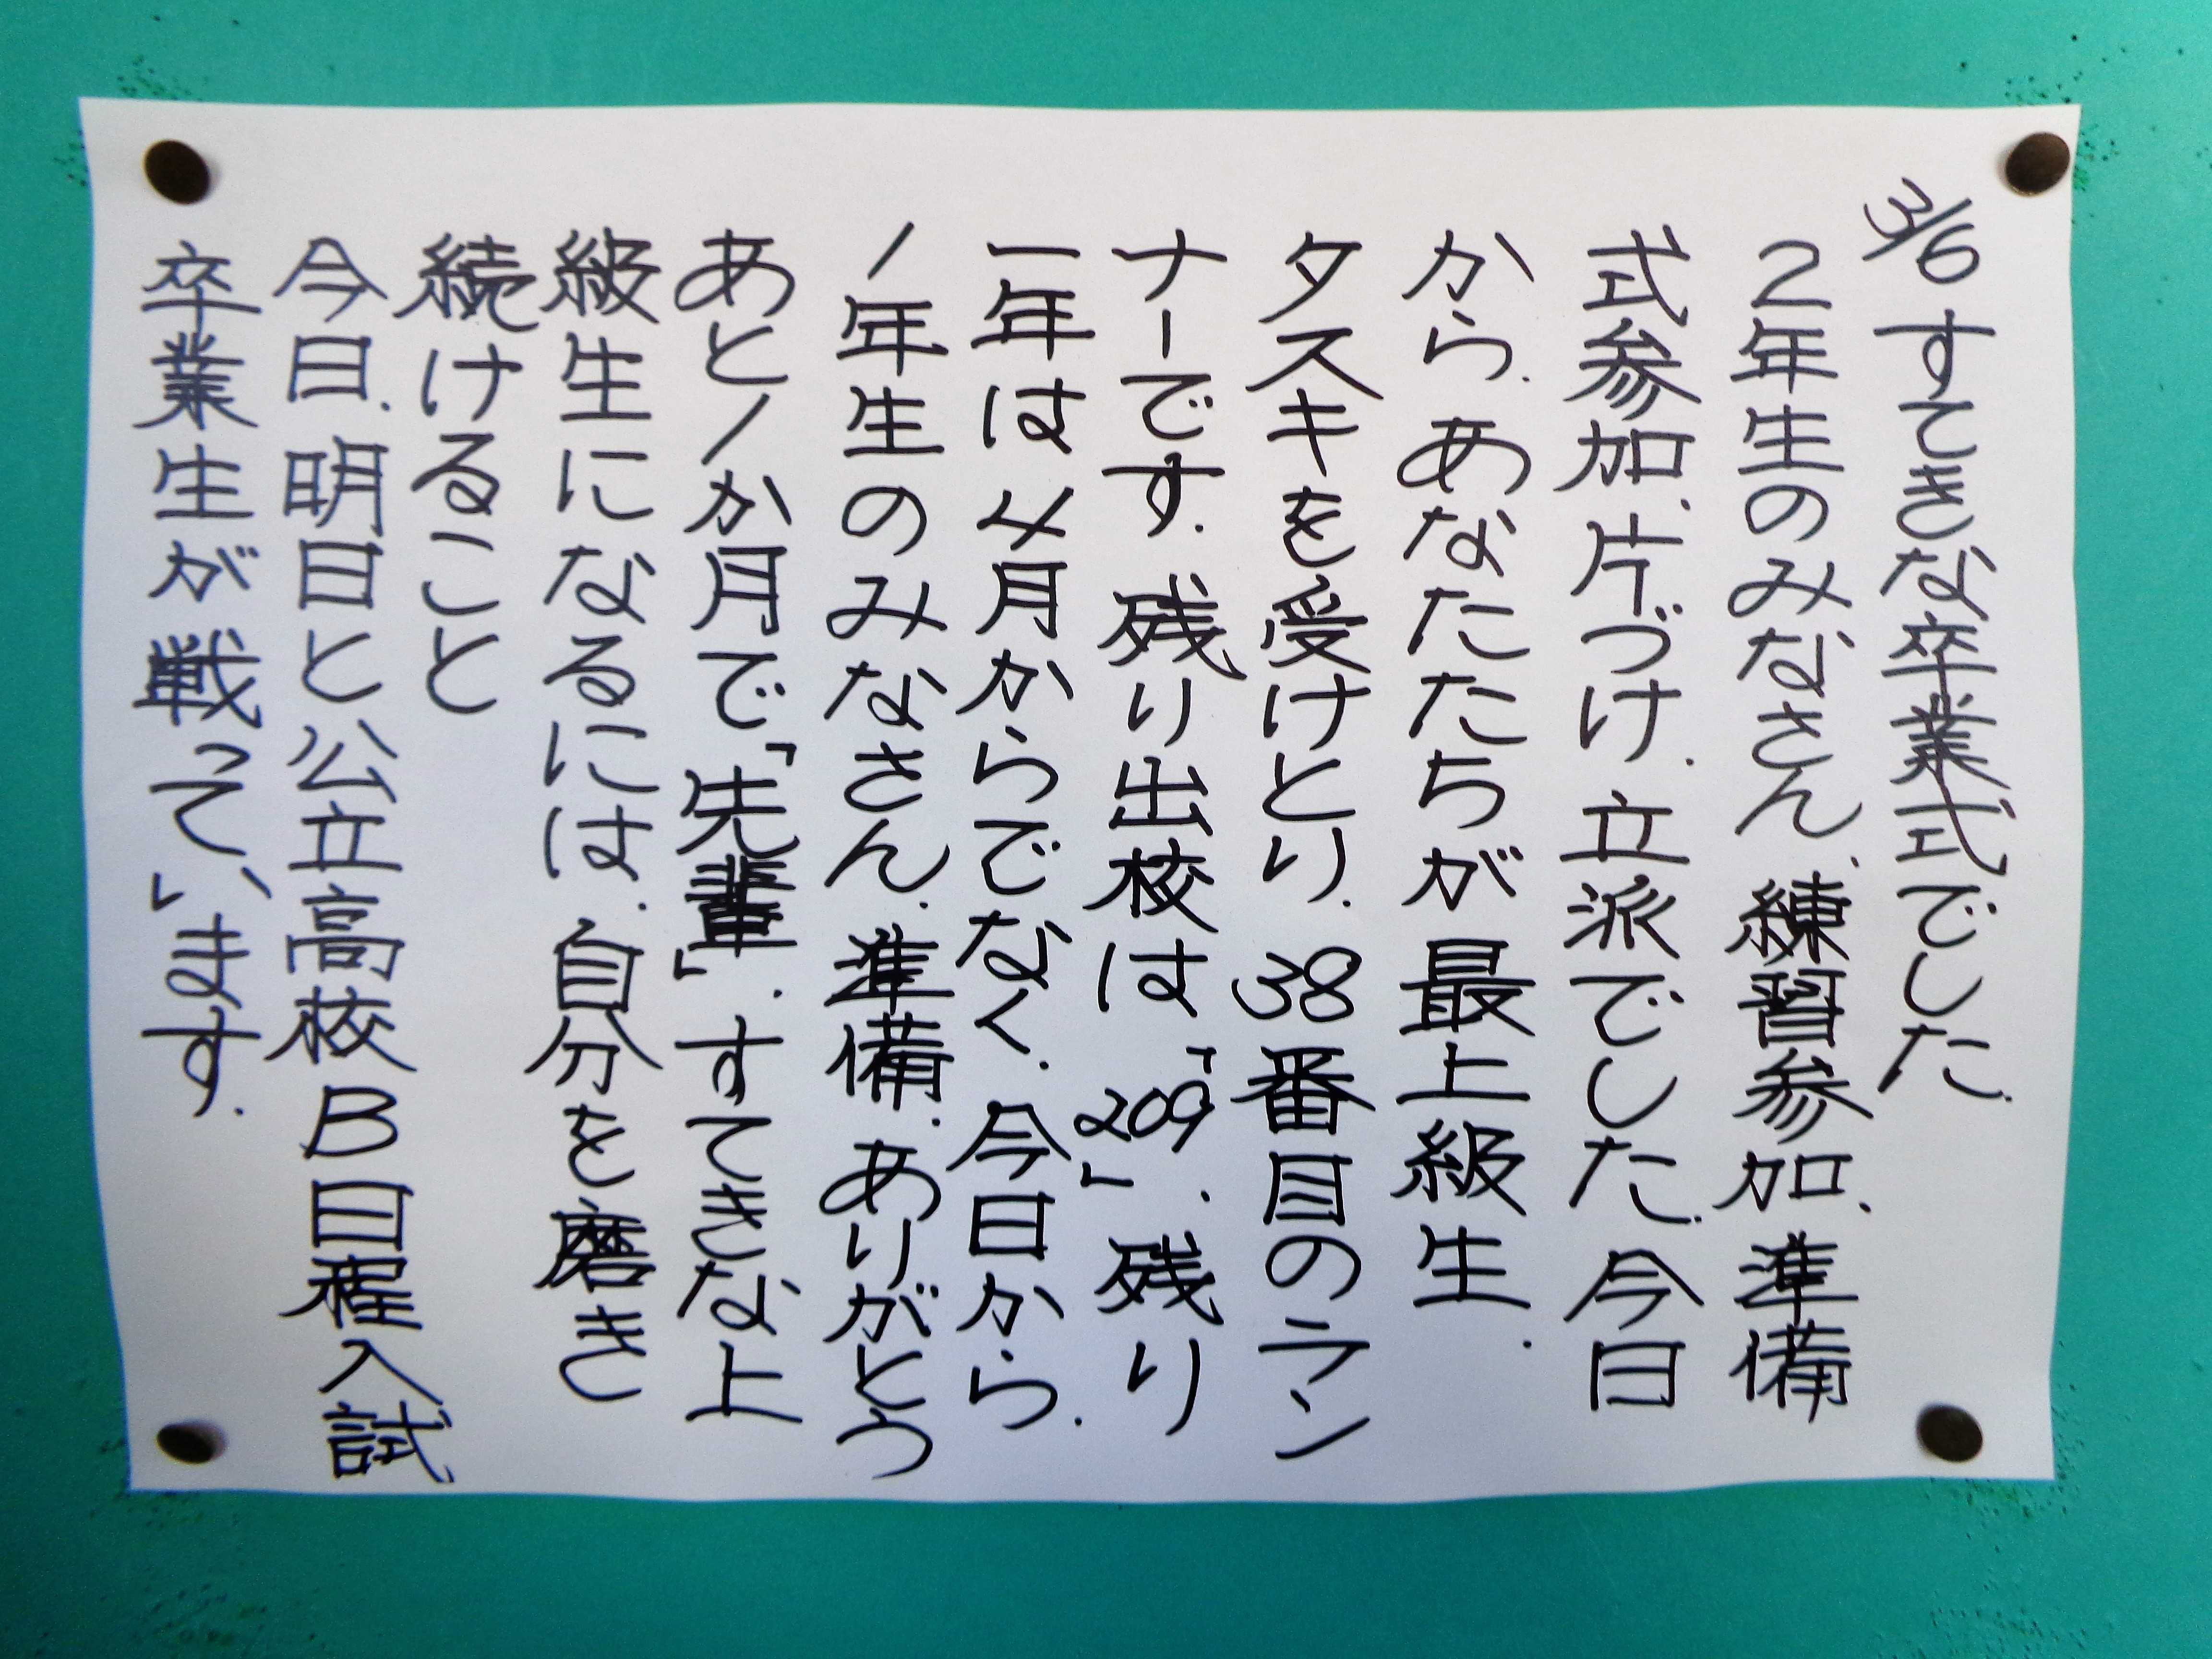 3/6 すてきな卒業式でした.
2年生のみなさん.練習参加.準備
式参加.片づけ.立派でした.今日
から.あなたたちが最上級生.
タスキを受けとり.38番目のラン
ナーです.残り出校は「209」.残り
一年は4月からでなく.今日から.
1年生のみなさん.準備.ありがとう
あと1か月で「先輩」.すてきな上
級生になるには.自分を磨き
続けること
今日.明日と公立高校B日程入試
卒業生が戦っています.